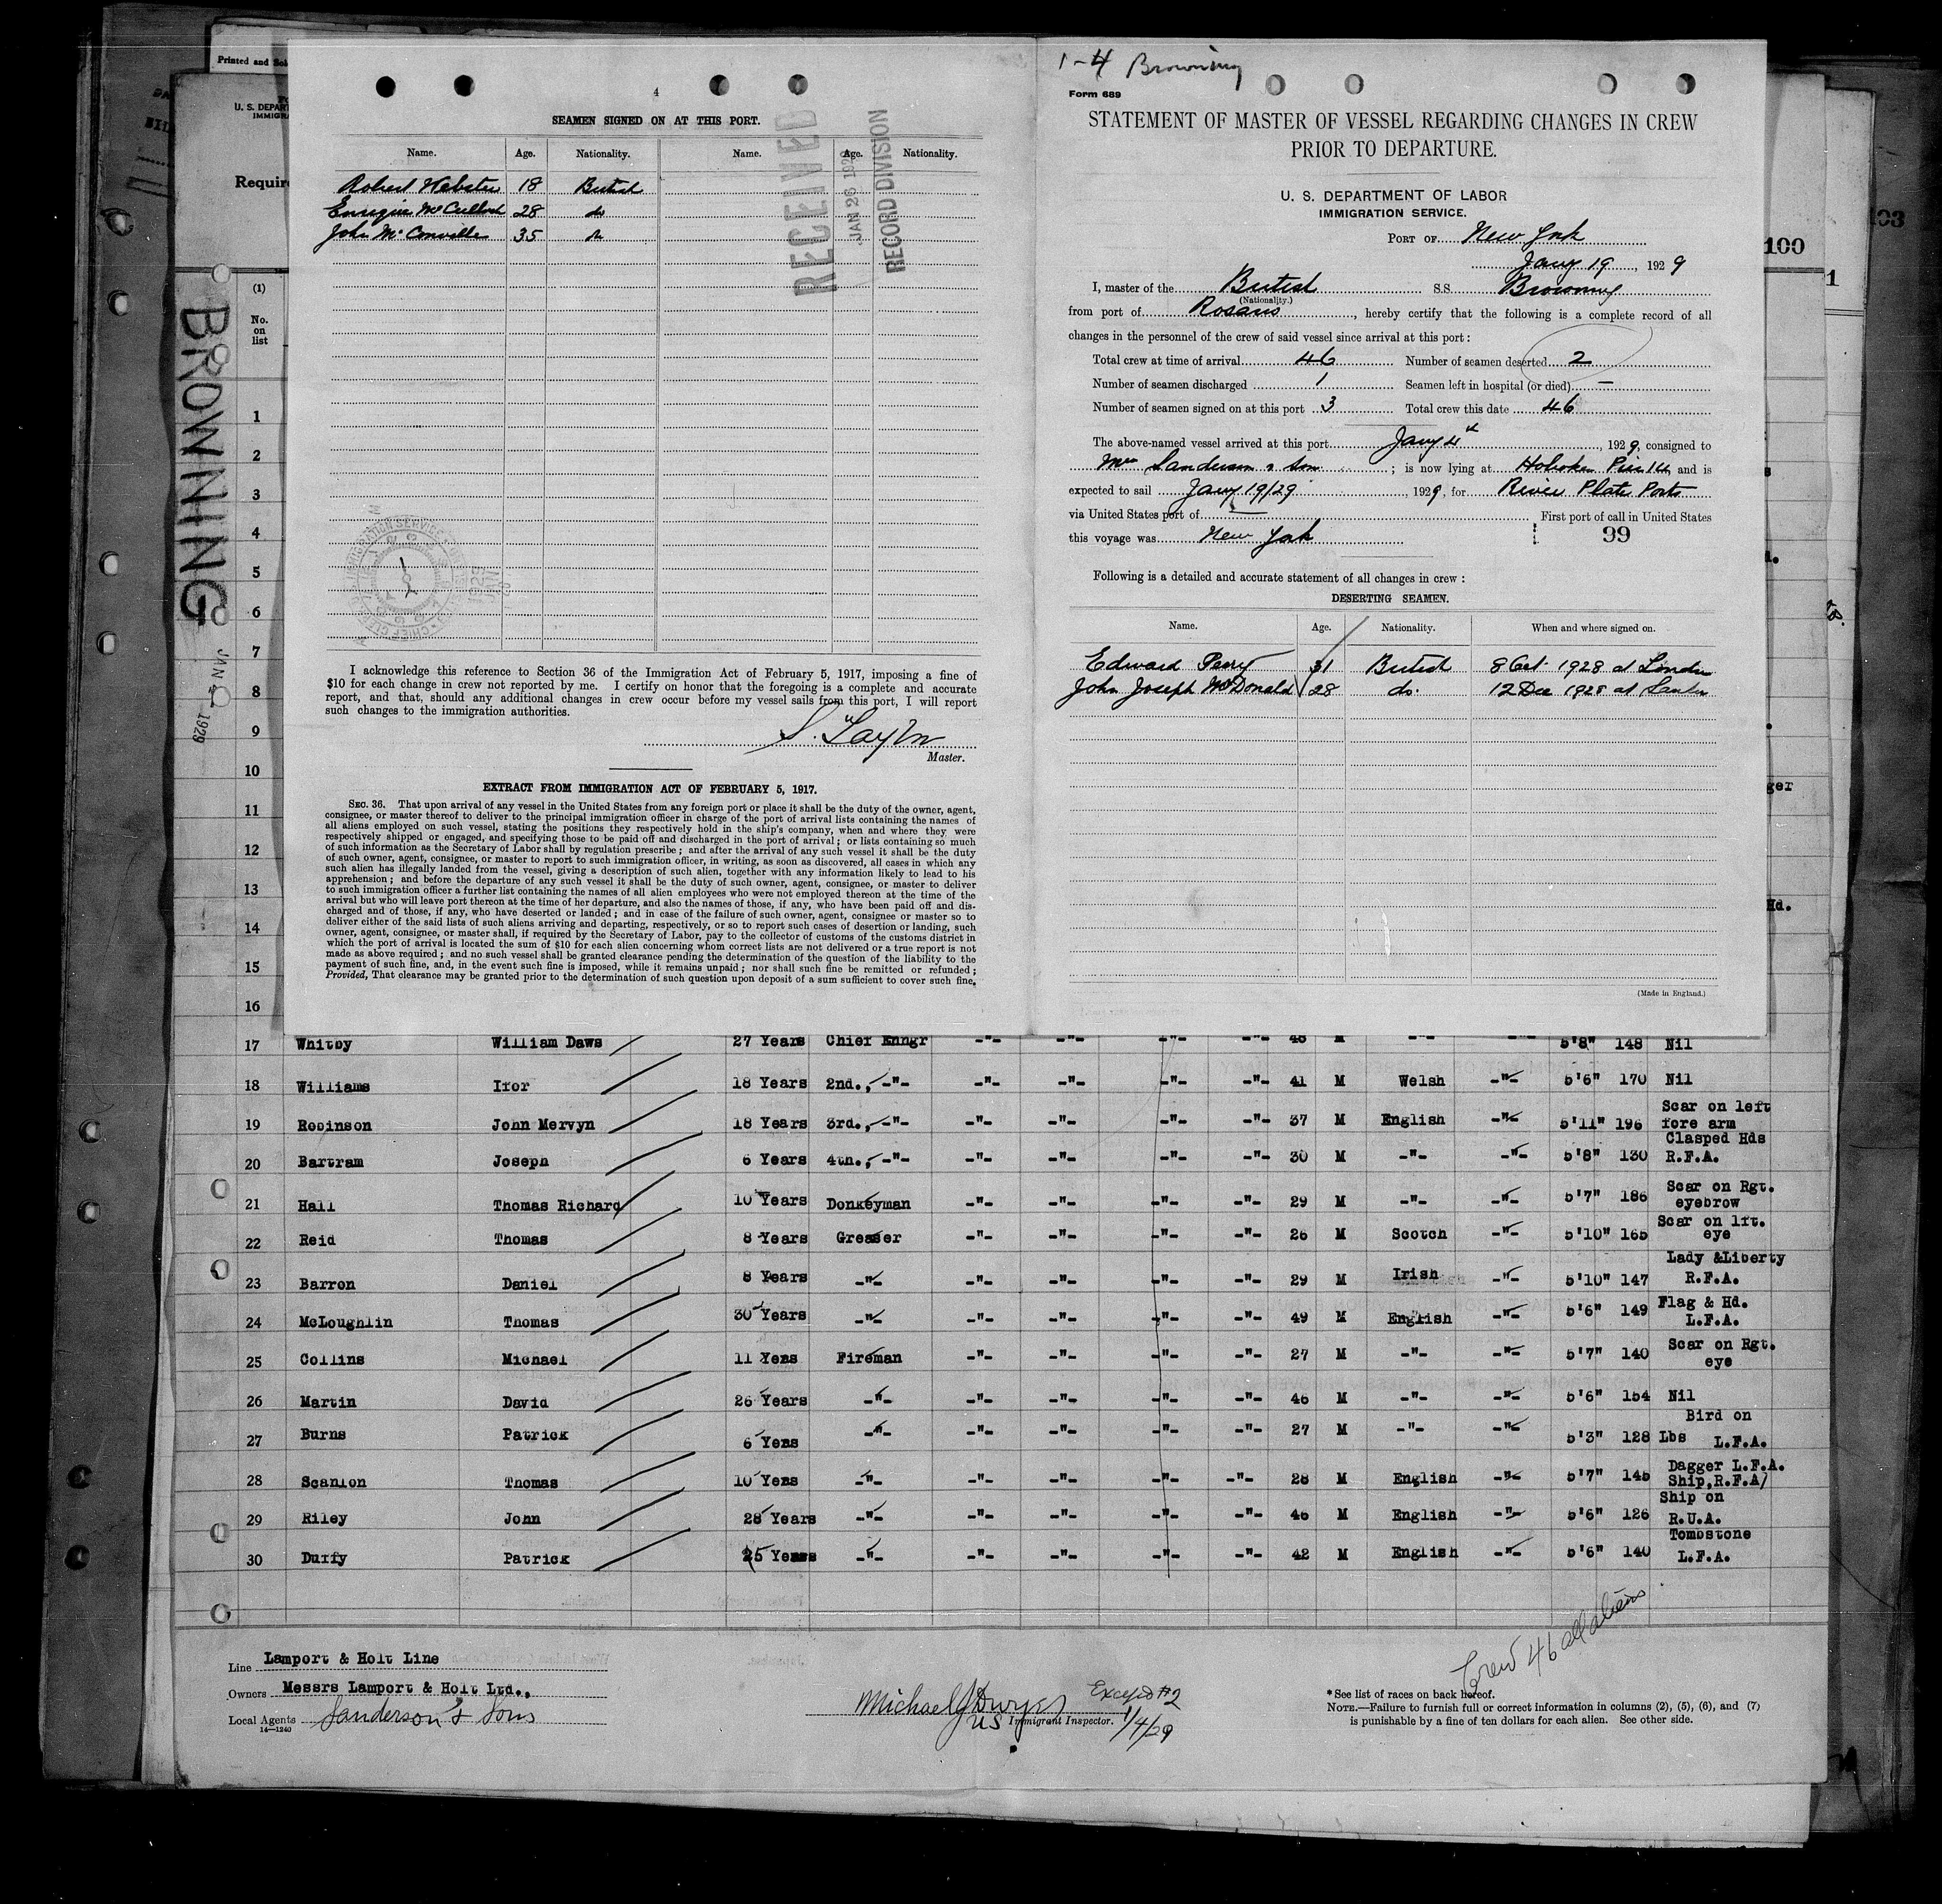 Printed and Sol
U. S. DEPAR
IMMIGRA
Requir
BROWNING
JAN 4 1929
(1)
No.
on
list
1
2
3
4
5
6
7
8
9
10
11
12
13
14
15
16
4
SEAMEN SIGNED ON AT THIS PORT.
Name. Age. Nationality. Name. Age. Nationality.
Robert Webster 18 British
Enrique McCulloch 28 do
John McConville 35 do
RECEIVED
JAN 26 1929
RECORD DIVISION
I acknowledge this reference to Section 36 of the Immigration Act of February 5, 1917, imposing a fine of
$10 for each change in crew not reported by me. I certify on honor that the foregoing is a complete and accurate
report, and that, should any additional changes in crew occur before my vessel sails from this port, I will report
such changes to the immigration authorities.
S. Taylor
Master.
EXTRACT FROM IMMIGRATION ACT OF FEBRUARY 5, 1917.
SEC. 36. That upon arrival of any vessel in the United States from any foreign port or place it shall be the duty of the owner, agent,
consignee, or master thereof to deliver to the principal immigration officer in charge of the port of arrival lists containing the names of
all aliens employed on such vessel, stating the positions they respectively hold in the ship's company, when and where they were
respectively shipped or engaged, and specifying those to be paid off and discharged in the port of arrival; or lists containing so much
of such information as the Secretary of Labor shall by regulation prescribe; and after the arrival of any such vessel it shall be the duty
of such owner, agent, consignee, or master to report to such immigration officer, in writing, as soon as discovered, all cases in which any
such alien has illegally landed from the vessel, giving a description of such alien, together with any information likely to lead to his
apprehension; and before the departure of any such vessel it shall be the duty of such owner, agent, consignee, or master to deliver
to such immigration officer a further list containing the names of all alien employees who were not employed thereon at the time of the
arrival but who will leave port thereon at the time of her departure, and also the names of those, if any, who have been paid off and dis-
charged and of those, if any, who have deserted or landed; and in case of the failure of such owner, agent, consignee or master so to
deliver either of the said lists of such aliens arriving and departing, respectively, or so to report such cases of desertion or landing, such
owner, agent, consignee, or master shall, if required by the Secretary of Labor, pay to the collector of customs of the customs district in
which the port of arrival is located the sum of $10 for each alien concerning whom correct lists are not delivered or a true report is not
made as above required; and no such vessel shall be granted clearance pending the determination of the question of the liability to the
payment of such fine, and, in the event such fine is imposed, while it remains unpaid; nor shall such fine be remitted or refunded;
Provided, That clearance may be granted prior to the determination of such question upon deposit of a sum sufficient to cover such fine.
1-4 Browning
Form 689
STATEMENT OF MASTER OF VESSEL REGARDING CHANGES IN CREW
PRIOR TO DEPARTURE.
U. S. DEPARTMENT OF LABOR
IMMIGRATION SERVICE.
PORT OF New York
Jany 19, 1929
I, master of the British S.S. Browning
(Nationality.)
from port of Rosario, hereby certify that the following is a complete record of all
changes in the personnel of the crew of said vessel since arrival at this port:
Total crew at time of arrival 46 Number of seamen deserted 2
Number of seamen discharged 1 Seamen left in hospital (or died) —
Number of seamen signed on at this port 3 Total crew this date 46
The above-named vessel arrived at this port Jany 4th, 1929, consigned to
Mrs Sanderson & Son; is now lying at Hoboken Pier 14, and is
expected to sail Jany 19/29, 1929, for River Plate Ports
via United States port of — First port of call in United States
this voyage was New York 99
Following is a detailed and accurate statement of all changes in crew:
DESERTING SEAMEN.
Name. Age. Nationality. When and where signed on.
Edward Perry 31 British 8 Oct. 1928 at London
John Joseph McDonald 28 do. 12 Dec 1928 at
(Made in England.)
100
103
1
ger
Hd.
17 Whitby William Daws 27 Years Chief Enngr -"- -"- -"- -"- 48 M -"- -"- 5'8" 148 Nil
18 Williams Ifor 18 Years 2nd., -"- -"- -"- -"- -"- 41 M Welsh -"- 5'6" 170 Nil
19 Robinson John Mervyn 18 Years 3rd., -"- -"- -"- -"- -"- 37 M English -"- 5'11" 196 Scar on left
fore arm
20 Bartram Joseph 6 Years 4th., -"- -"- -"- -"- -"- 30 M -"- -"- 5'8" 130 Clasped Hds
R.F.A.
21 Hall Thomas Richard 10 Years Donkeyman -"- -"- -"- -"- 29 M -"- -"- 5'7" 186 Scar on Rgt.
eyebrow
22 Reid Thomas 8 Years Greaser -"- -"- -"- -"- 26 M Scotch -"- 5'10" 165 Scar on lft.
eye
23 Barron Daniel 8 Years -"- -"- -"- -"- -"- 29 M Irish -"- 5'10" 147 Lady &Liberty
R.F.A.
24 McLoughlin Thomas 30 Years -"- -"- -"- -"- -"- 49 M English -"- 5'6" 149 Flag & Hd.
L.F.A.
25 Collins Michael 11 Yens Fireman -"- -"- -"- -"- 27 M -"- -"- 5'7" 140 Scar on Rgt.
eye
26 Martin David 26 Years -"- -"- -"- -"- -"- 46 M -"- -"- 5'6" 154 Nil
27 Burns Patrick 6 Yens -"- -"- -"- -"- -"- 27 M -"- -"- 5'3" 128 Lbs Bird on
L.F.A.
28 Scanlon Thomas 10 Yens -"- -"- -"- -"- -"- 28 M English -"- 5'7" 145 Dagger L.F.A.
Ship,R.F.A/
29 Riley John 28 Years -"- -"- -"- -"- -"- 46 M English -"- 5'6" 126 Ship on
R.U.A.
30 Duffy Patrick 25 Years -"- -"- -"- -"- -"- 42 M English -"- 5'6" 140 Tombstone
L.F.A.
Crew 46 all aliens
Line Lamport & Holt Line
Owners Messrs Lamport & Holt Ltd.,
Local Agents Sanderson & Sons
14—1240
Michael J Dwyer Except #2
US Immigrant Inspector. 1/4/29
*See list of races on back hereof.
NOTE.—Failure to furnish full or correct information in columns (2), (5), (6), and (7)
is punishable by a fine of ten dollars for each alien. See other side.